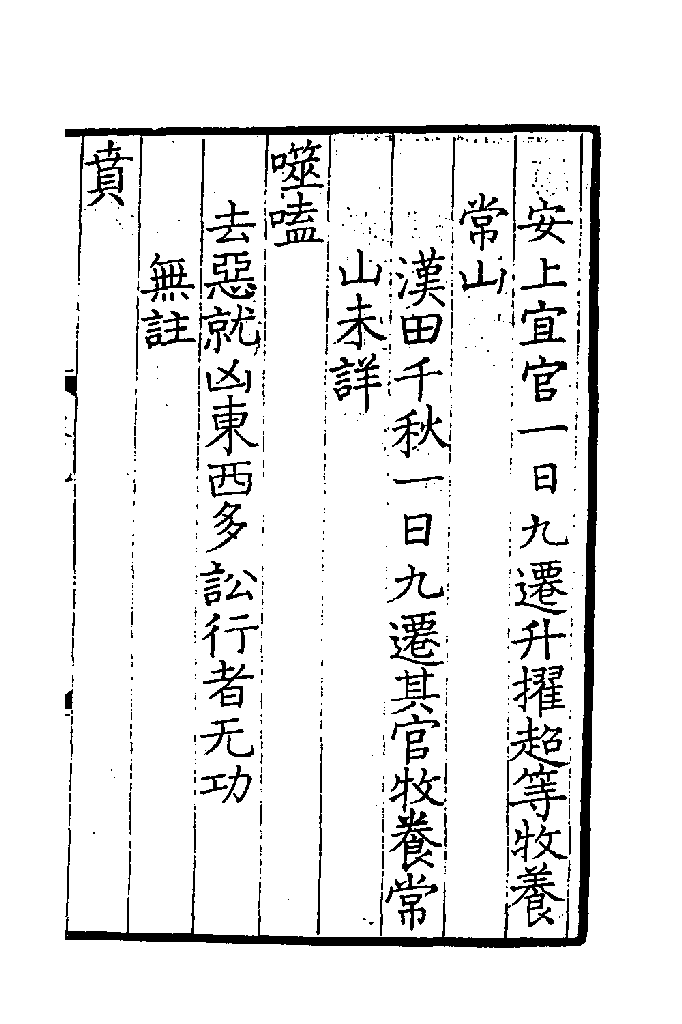 安上宜官一日九遷升擢超等牧養
常山
漢田千秋一日九遷其官牧養常
山未詳
噬嗑
去惡就凶東西多訟行者无功
無註
賁